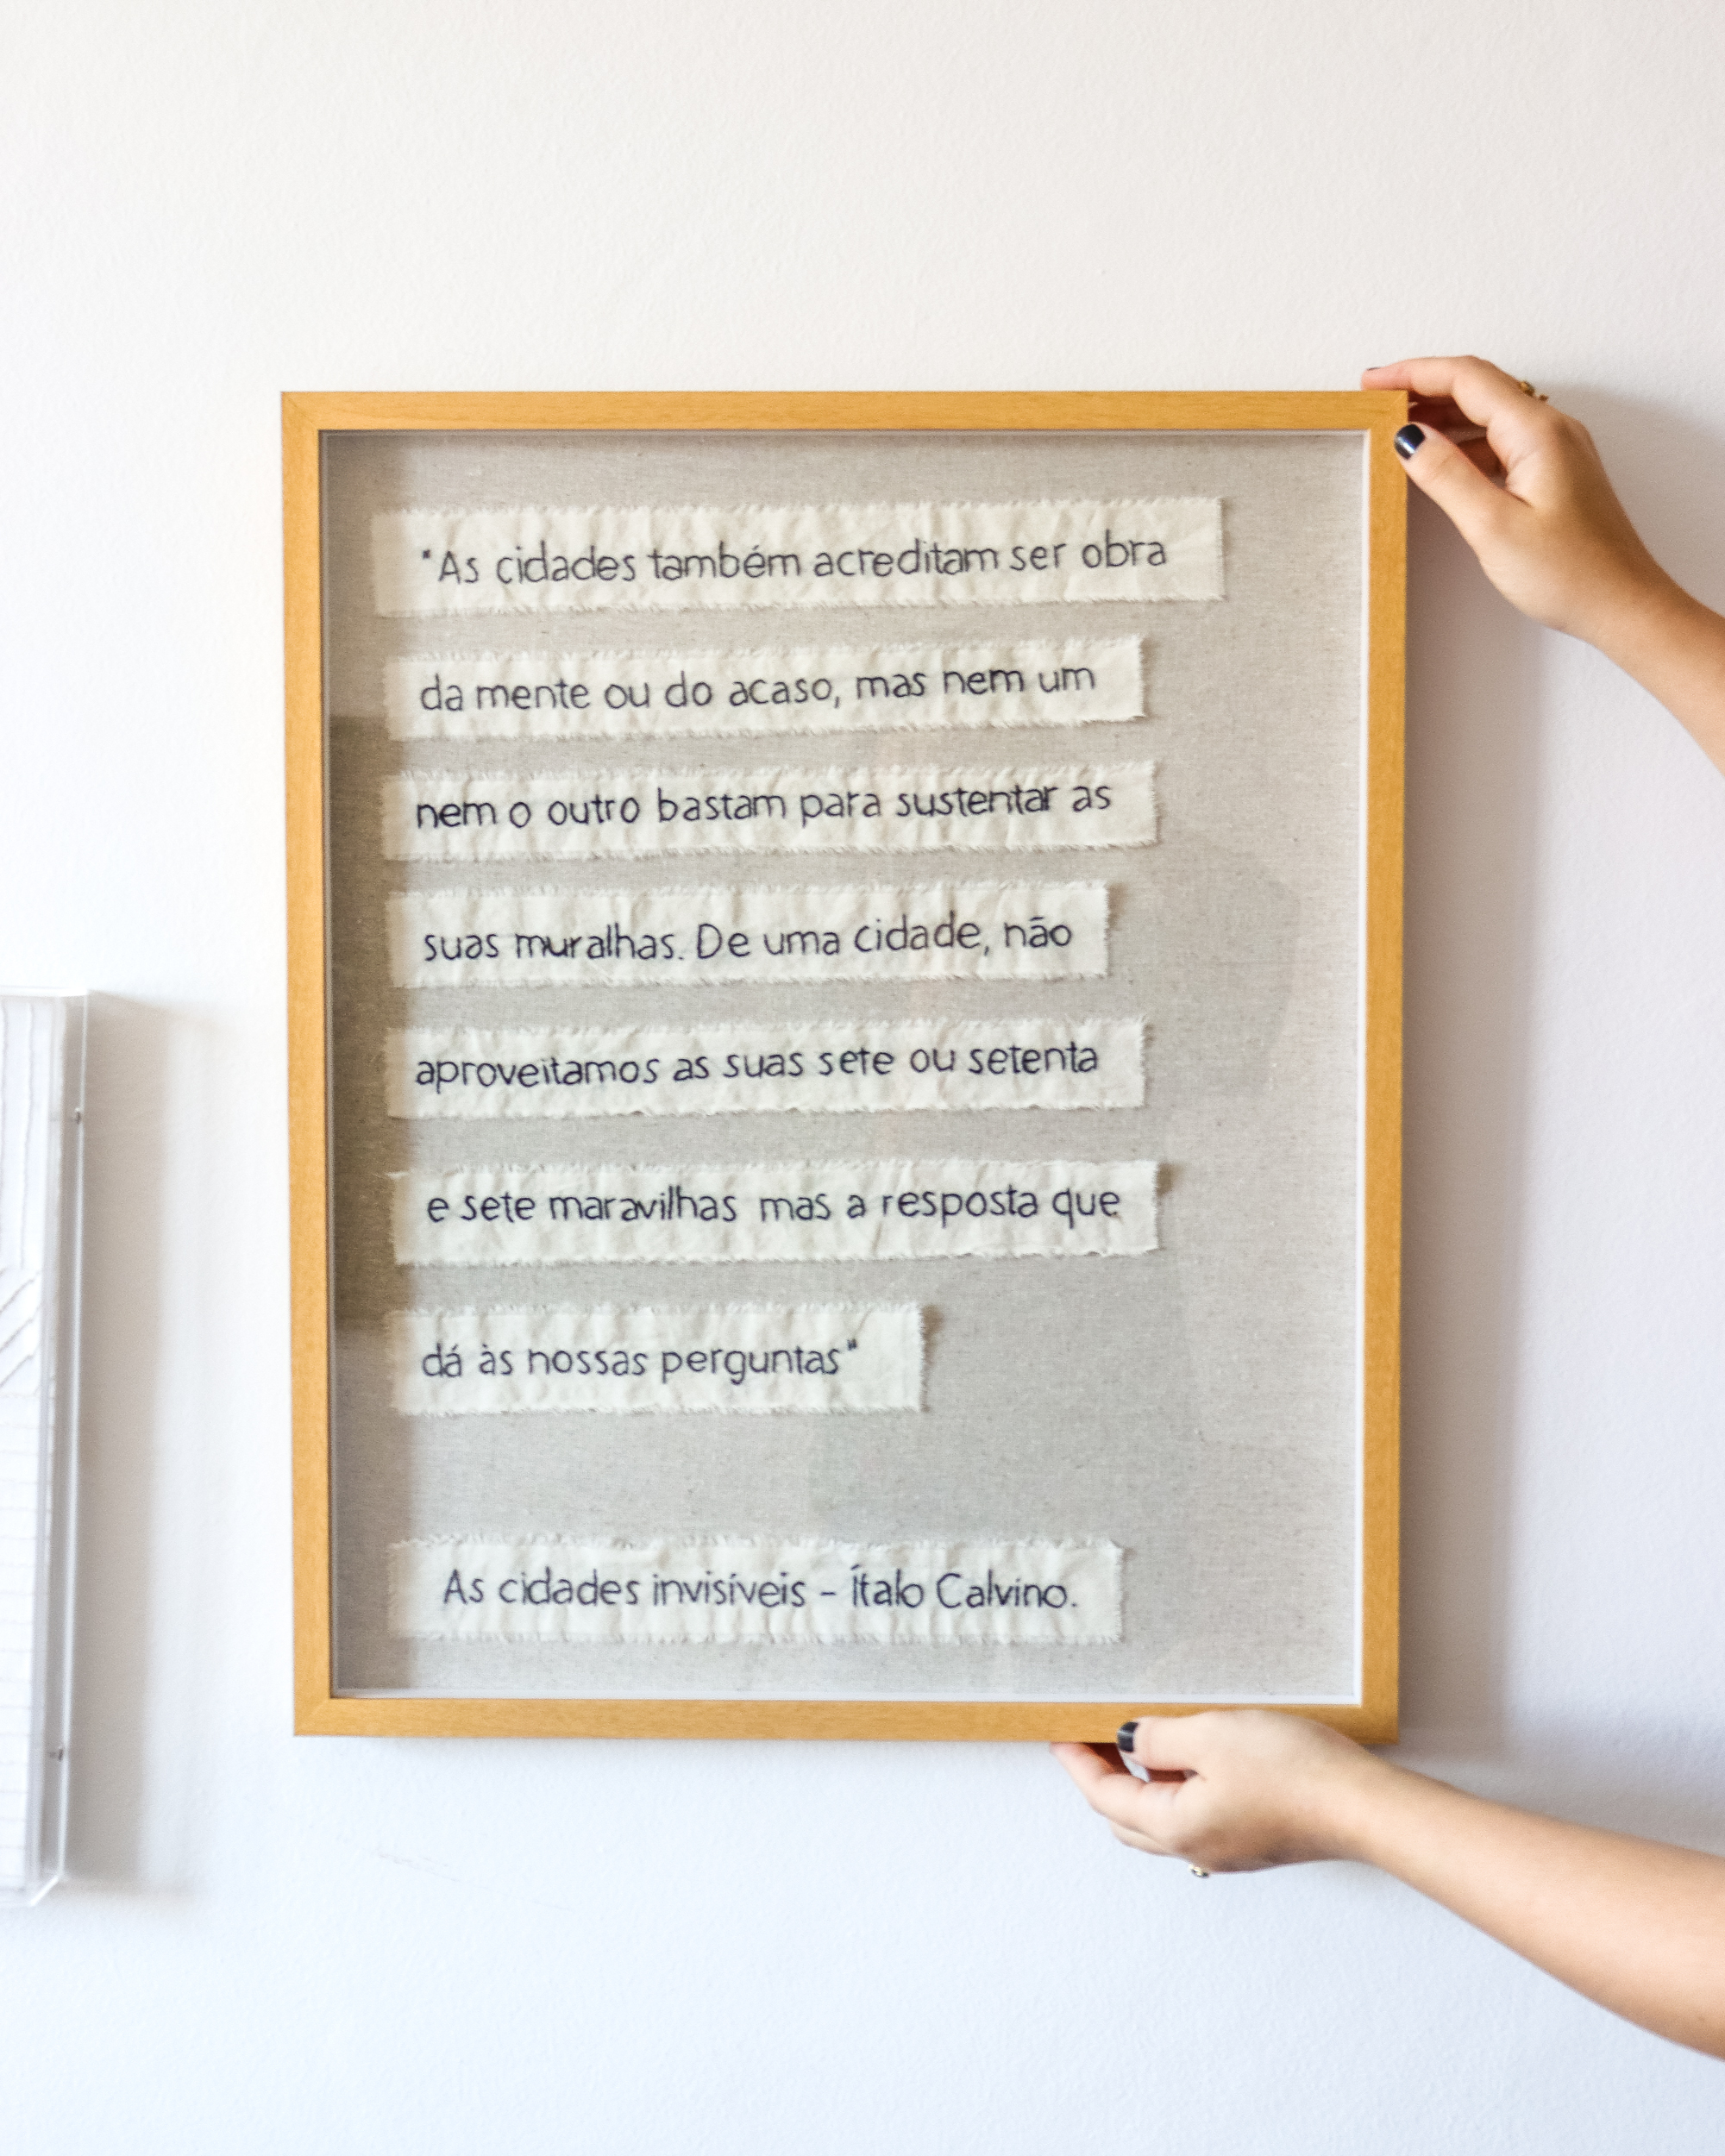 "As cidades também acreditam ser obra
da mente ou do acaso, mas nem um
nem o outro bastam para sustentar as
suas muralhas. De uma cidade, não
aproveitamos as suas sete ou setenta
e sete maravilhas mas a resposta que
dá às nossas perguntas"
As cidades invisíveis - Ítalo Calvino.